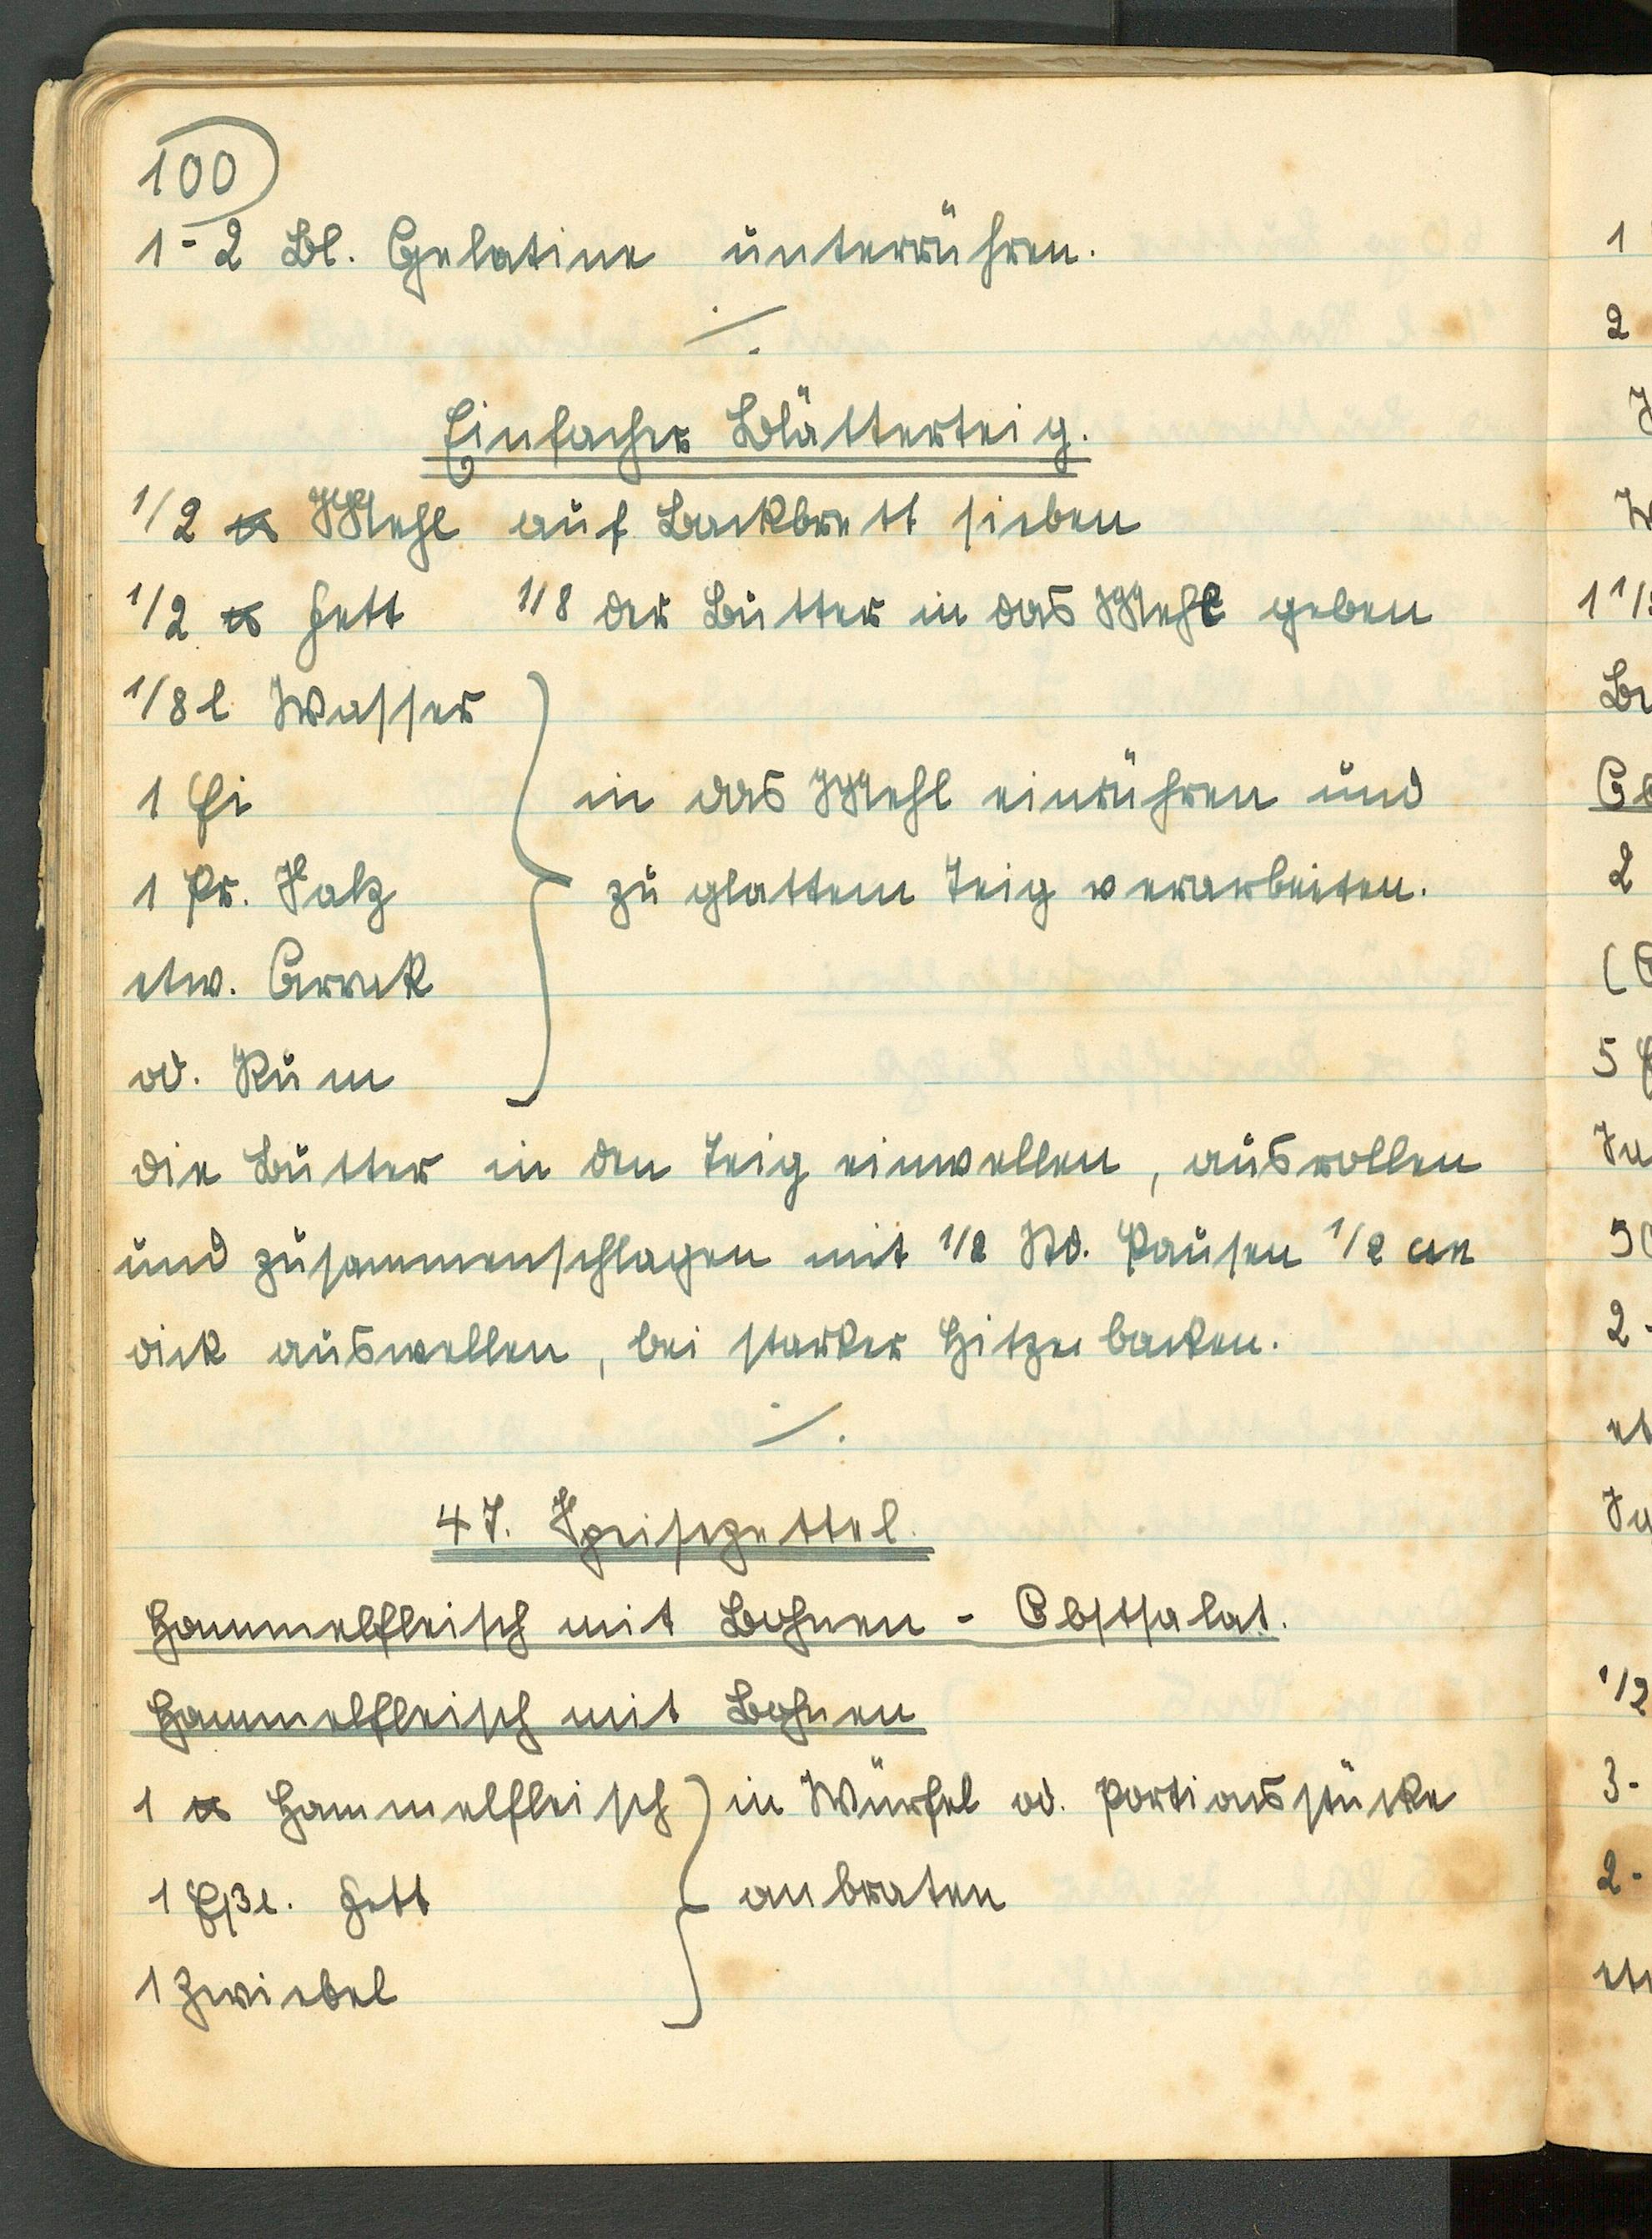 100
1-2 Bl. Gelatine unterrühren.
Einfacher Blätterteig.
1/2 ℔ Mehl auf Backbrett sieben
1/2 ℔ Fett 1/8 der Butter in das Mehl geben
1/8 l Wasser
1 Ei in das Mehl einrühren und
1 Pr. Salz zu glattem Teig verarbeiten.
etw. Arrak
od. Rum
die Butter in den Teig einwellen, ausrollen
und zusammenschlagen mit 1/2 Std. Pausen 1/2 cm
dick auswellen, bei starker Hitze backen.
47. Speisezettel.
Hammelfleisch mit Bohnen - Obstsalat.
Hammelfleisch mit Bohnen
1 ℔ Hammelfleisch in Würfel od. Portionsstücke
1 Eßl. Fett anbraten
1 Zwiebel